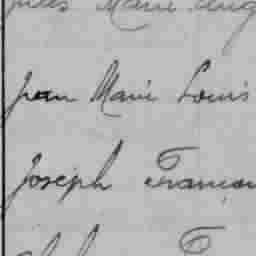 Jules Marie Aug
Jean Marie Louis
Joseph François